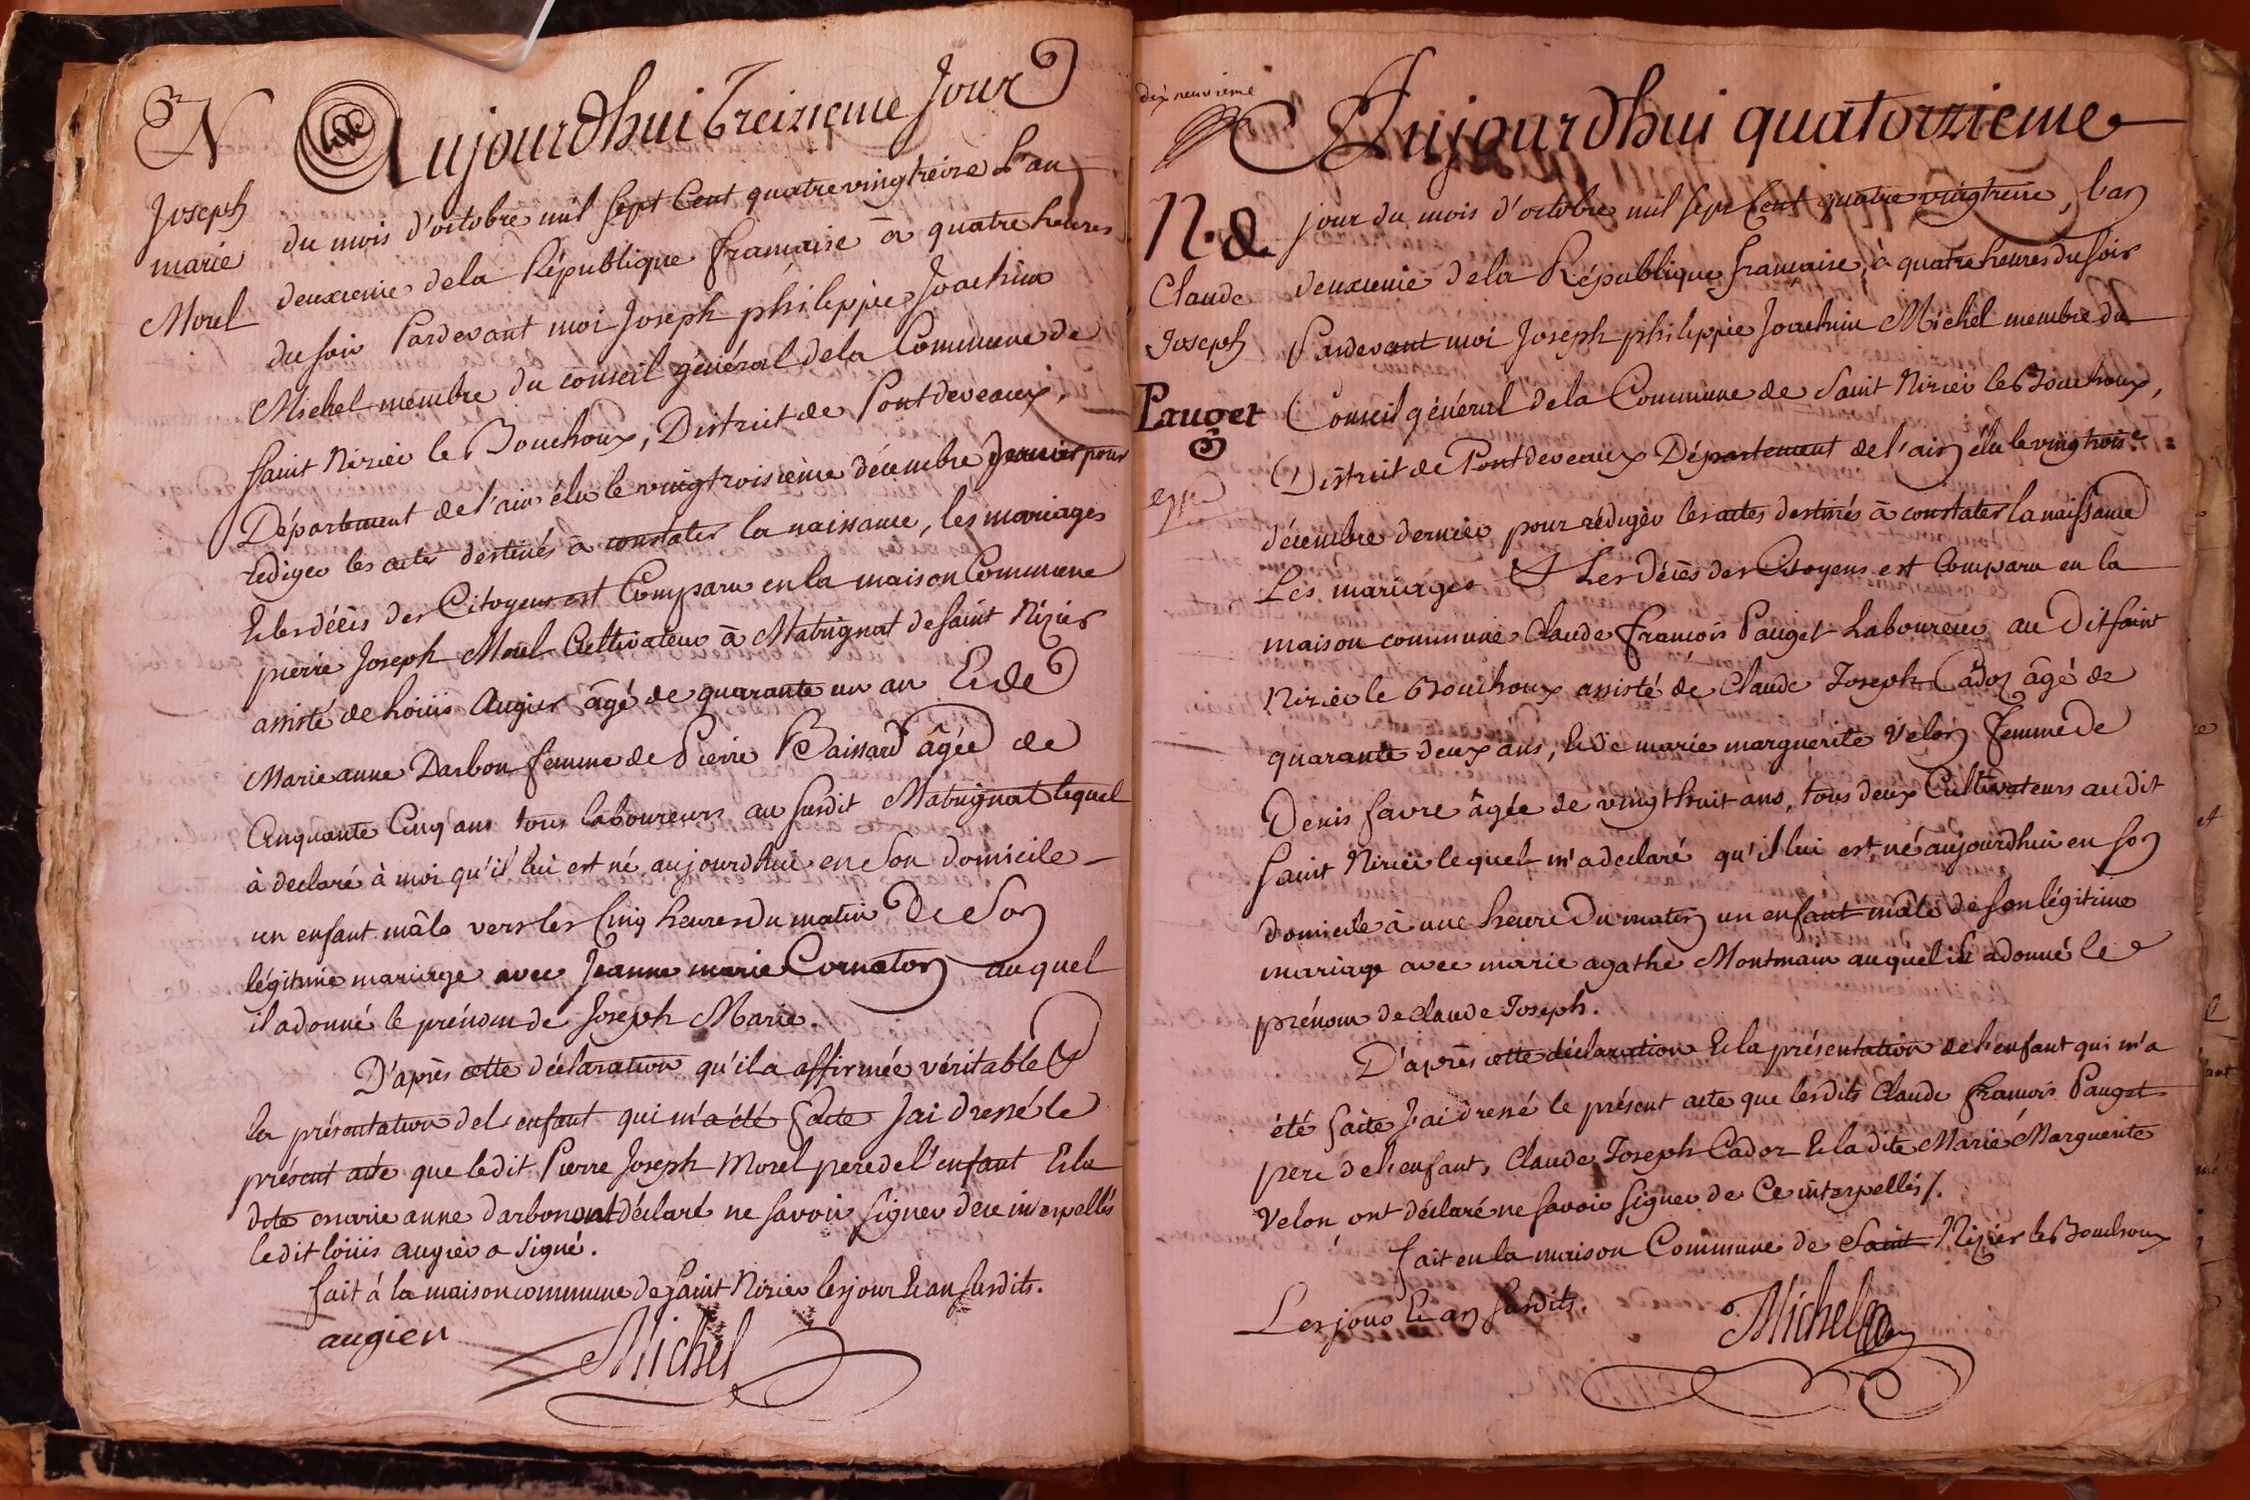 N
Joseph
marie
Morel
Aujourdhui treizieme Jour
du mois d'octobre mil sept Cent quatrevingtreize L'an
deuxieme dela République francaise à quatre heures
du soir Pardevant moi Joseph philippe Joachim
Michel membre du conseil général dela Commune de
Saint Nizier le Bouchoux, District de Pontdeveaux,
Département de l'ain élu le vingtroisieme décembre dernier pour
rediger les actes destinés à constater la naissance, les mariages
Et les décès des Citoyens est Comparu en la maison Commune
pierre Joseph Morel Cultivateur à Matrignat de saint Nizier
assisté de loüis Augier âgé de quarante un an Et de
Marie anne Darbon femme de Pierre Baissard âgée de
Cinquante Cinq ans tous laboureurs au susdit Matrignat lequel
à declaré à moi qu'il lui est né aujourdhui en Son domicile
un enfant mâle vers les Cinq heures du matin De Son
légitime mariage avec Jeanne marie Cornaton auquel
il a donné le prénom de Joseph Marie.
D'après cette déclaration qu'il a affirmée véritable &
la présentation del enfant qui m'a été faite Jai dressé le
présent acte que ledit Pierre Joseph Morel pere de l'enfant Et la
dite marie anne darbon ont déclaré ne savoir signer dece interpellés
ledit loüis augier a signé.
fait à la maison commune de saint Nizier les jour Et an susdits.
augier
Michel
dix neuvieme
N. &
Claude
Joseph
Pauget
Aujourdhui quatorzieme
jour du mois d'octobre mil sept Cent quatre vingtreize, l'an
deuxieme dela République francaise, à quatre heures du soir
Pardevant moi Joseph philippe Joachim Michel membre du
Conseil général dela Commune de Saint Nizier le Bouchoux,
District de Pontdeveaux Département de l'ain élu le vingtrois.e
décembre dernier pour rédiger les actes destinés à constater la naissance
Les mariages & Les Décès des Citoyens est Comparu en la
maison commune Claude François Pauget Laboureur au Dit saint
Nizier le Bouchoux assisté de Claude Joseph Cadoz âgé de
quarante deux ans, Et de marie marguerite Velon femme de
Denis favre âgée de vingt huit ans, tous deux Cultivateurs au dit
Saint Nizier lequel m'a declaré qu'il lui est né aujourdhui en son
domicile à une heure Du matin un enfant mâle de son légitime
mariage avec marie agathe Montmain auquel il a donné le
prénom de claude Joseph.
D'après cette déclaration Et la présentation de l'enfant qui m'a
été faite J'ai dressé le présent acte que lesdits Claude François Pauget
pere de l'enfant, Claude Joseph Cadoz Et la dite Marie Marguerite
Velon ont déclaré ne savoir signer de Ce interpellés /.
fait en la maison Commune de Saint Nizier le Bouchoux
Les jour Et an susdits.
Michel